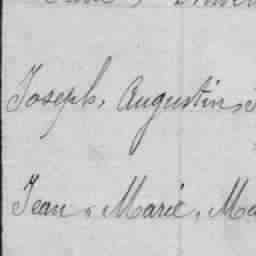 Joseph, Augustin,
Jean, Marie, Ma